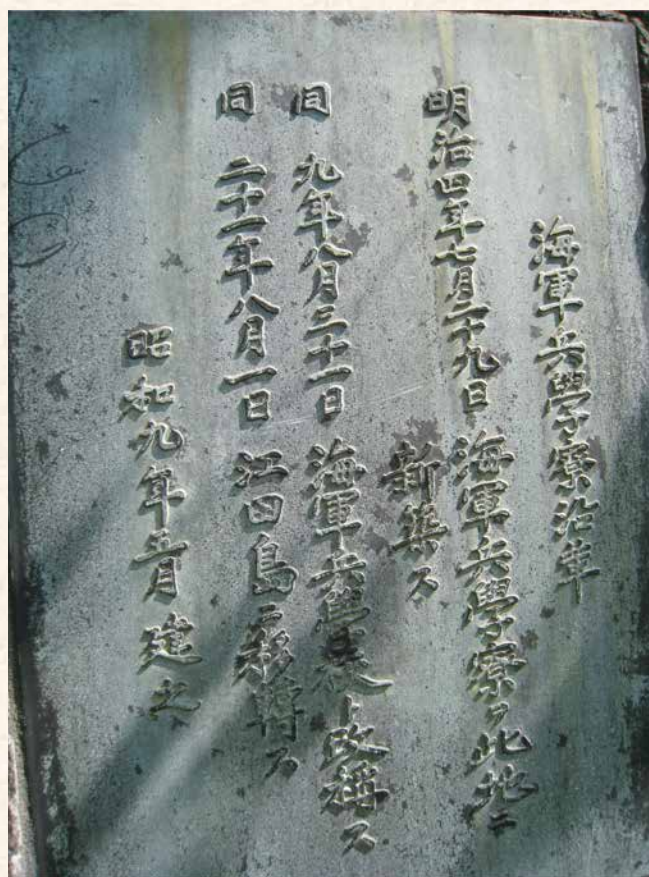 海軍兵學寮沿革
明治四年七月二十九日 海軍兵學寮ヲ此地ニ
新築ス
同 九年八月三十一日 海軍兵學校ト改稱ス
同 二十一年八月一日 江田島ニ移轉ス
昭和九年五月 建之